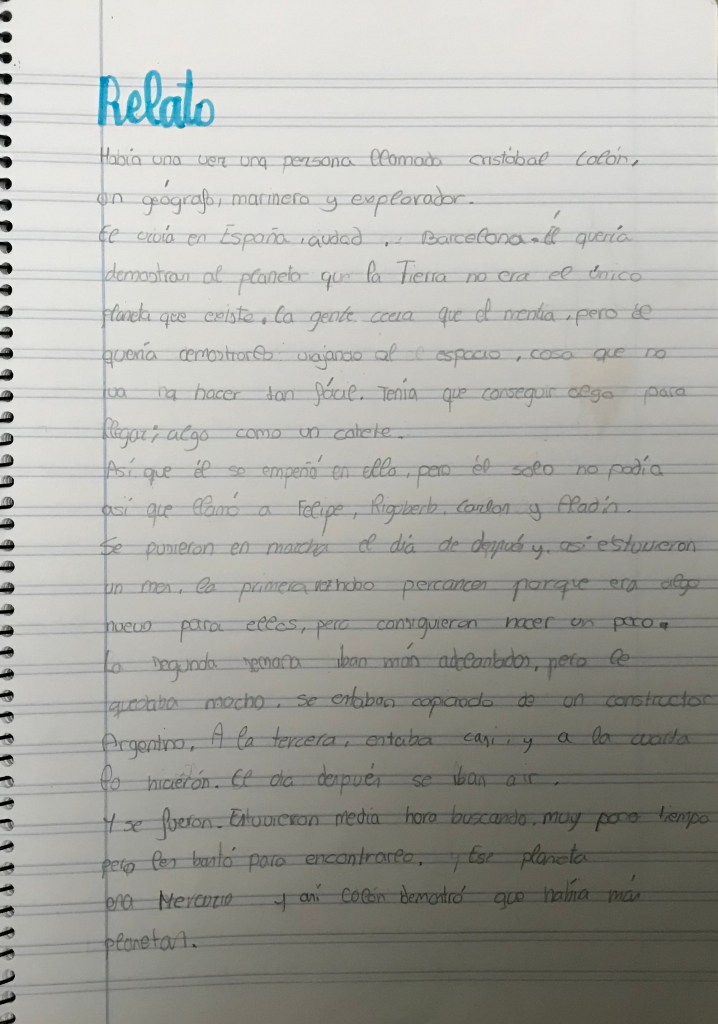 Relato
Había una vez una persona llamado cristóbal Colón,
un geógrafo, marinero y explorador.
El vivía en España, ciudad, Barcelona. Él quería
demostrar al planeta que la Tierra no era el único
planeta que existe. La gente creia que el mentia, pero le
quería demostrarlo viajando al espacio, cosa que no
iva ha hacer tan fácil. Tenía que conseguir algo para
llegar; algo como un cohete.
Así que él se empeñó en ello, pero él solo no podía
así que llamó a Felipe, Rigoberto, Carlon y
Se pusieron en marcha el día de después y, asi estouieron
un mes, la primera hubo percances porque era algo
nuevo para ellos, pero consiguieron hacer un poco.
La segunda semana iban más adelantados, pero le
quedaba mocho. se estaban copiando de un constructor
Argentino. A la tercera, estaba casi, y a la cuarta
lo hiciéron. El dia después se iban air.
Y se fueron. Estouieron media hora buscando, muy poco tiempo
pero les bastó para encontrarlo. y Ese planeta
era Mercurio y asi Colón demostró que había más
planetas.